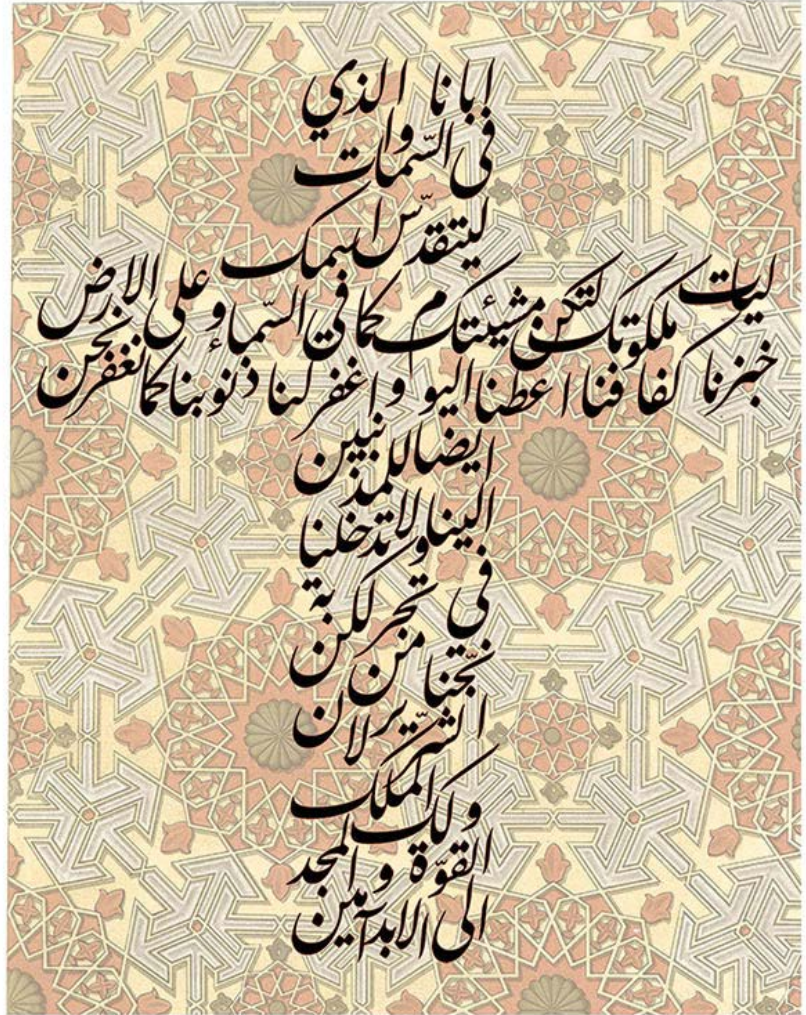 ابانا الذي
في السّموات
ليتقدّس اسمك
ليات ملكوتك لتكن مشيئتك كما في السّماء وعلى الارض
خبزنا كفافنا اعطنا اليوم واغفر لنا ذنوبنا كما نغفر نحن
ايضا للمذنبين
الينا ولا تدخلنا
في تجربة لكن
نجّنا من
الشرّير لان
لك الملك و
القوّة و المجد
الى الابد آمين